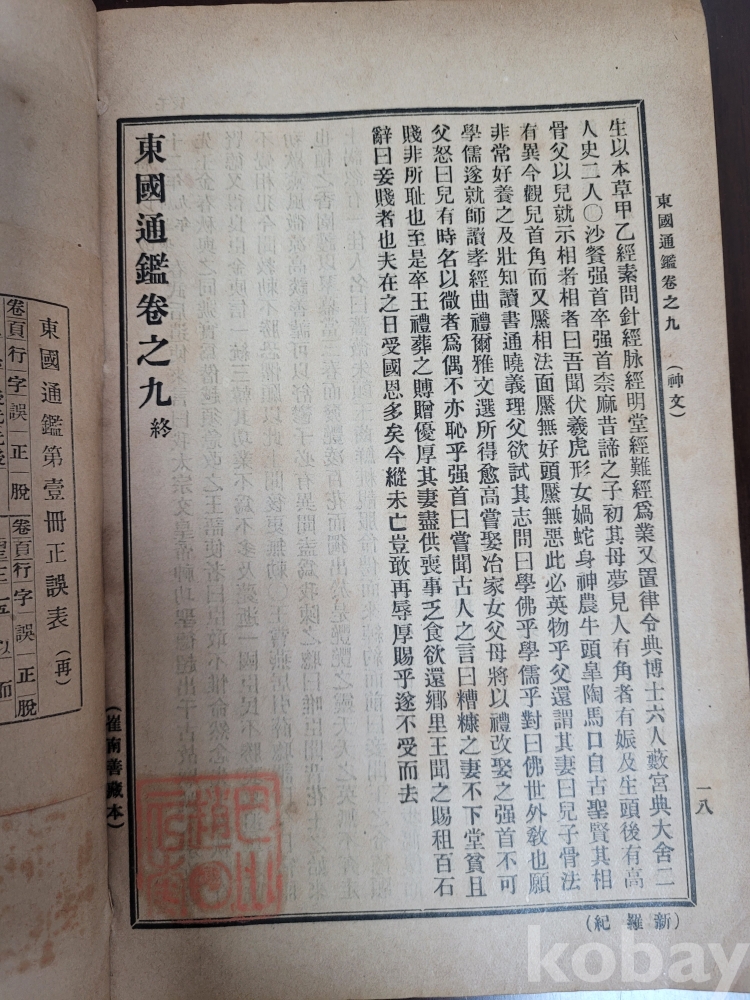 東國通鑑卷之九 (神文)
一八
(新羅紀)
生以本草甲乙經素問針經脉經明堂經難經爲業又置律令典博士六人藪宮典大舍二
人史二人○沙餐强首卒强首柰麻昔諦之子初其母夢見人有角者有娠及生頭後有高
骨父以兒就示相者相者曰吾聞伏羲虎形女媧蛇身神農牛頭皐陶馬口自古聖賢其相
有異今觀兒首角而又黶相法面黶無好頭黶無惡此必英物乎父還謂其妻曰兒子骨法
非常好養之及壯知讀書通曉義理父欲試其志問曰學佛乎學儒乎對曰佛世外敎也願
學儒遂就師讀孝經曲禮爾雅文選所得愈高嘗娶冶家女父母將以禮改娶之强首不可
父怒曰兒有時名以微者爲偶不亦恥乎强首曰嘗聞古人之言曰糟糠之妻不下堂貧且
賤非所耻也至是卒王禮葬之賻贈優厚其妻盡供喪事乏食欲還鄉里王聞之賜租百石
辭曰妾賤者也夫在之日受國恩多矣今縱未亡豈敢再辱厚賜乎遂不受而去
東國通鑑卷之九 終
(崔南善藏本)
東國通鑑第壹冊正誤表 (再)
卷頁行字誤正脫
卷頁行字誤正脫
kobay